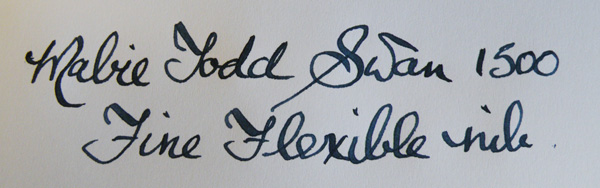 Mabie Todd Swan 1500
Fine Flexible nib.